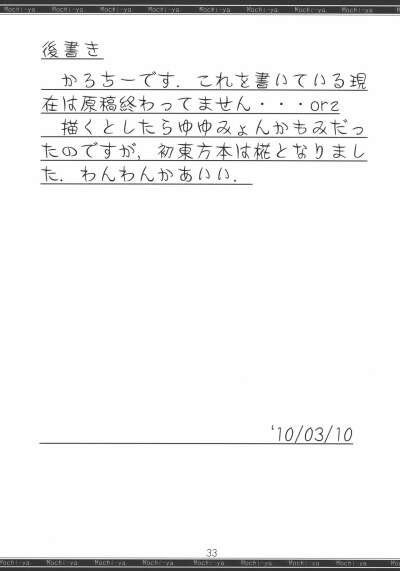 Mochi-ya Mochi-ya Mochi-ya Mochi-ya Mochi-ya Mochi-ya Mochi-ya Mochi-ya
後書き
　かろちーです．これを書いている現
在は原稿終わってません・・・orz
　描くとしたらゆゆみょんかもみだっ
たのですが，初東方本は椛となりまし
た．わんわんかあいい．
'10/03/10
33
Mochi-ya Mochi-ya Mochi-ya Mochi-ya Mochi-ya Mochi-ya Mochi-ya Mochi-ya